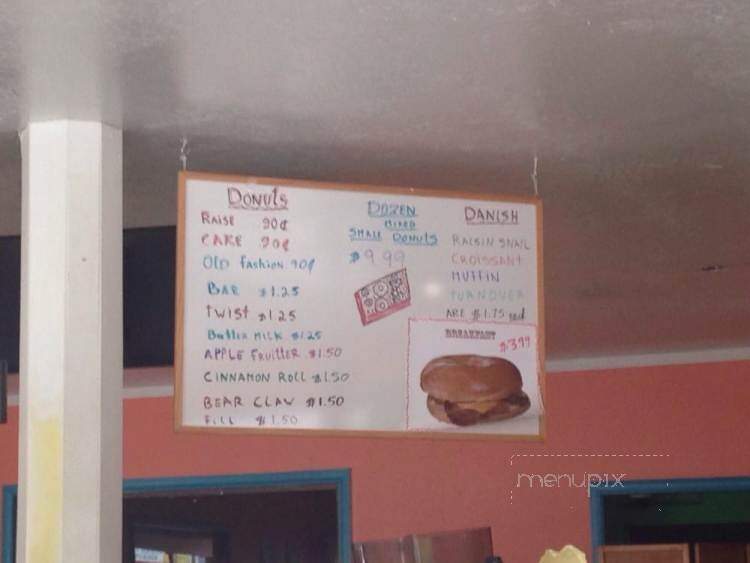 DONUTS
RAISE 90¢
CAKE .90¢
OlD fashion. 90¢
BAR $1.25
TWIST $1.25
Butter MILK $1.25
APPLE FRUITTER $1.50
CINNAMON ROLL $1.50
BEAR CLAW $1.50
FILL $1.50
DOZEN
MIXED
SMALL DONUTS
$9.99
DANISH
RAISIN SNAIL
CROISSANT
MUFFIN
TURNOVER
ARE $1.75 ea
BREAKFAST
$3.99
menupix